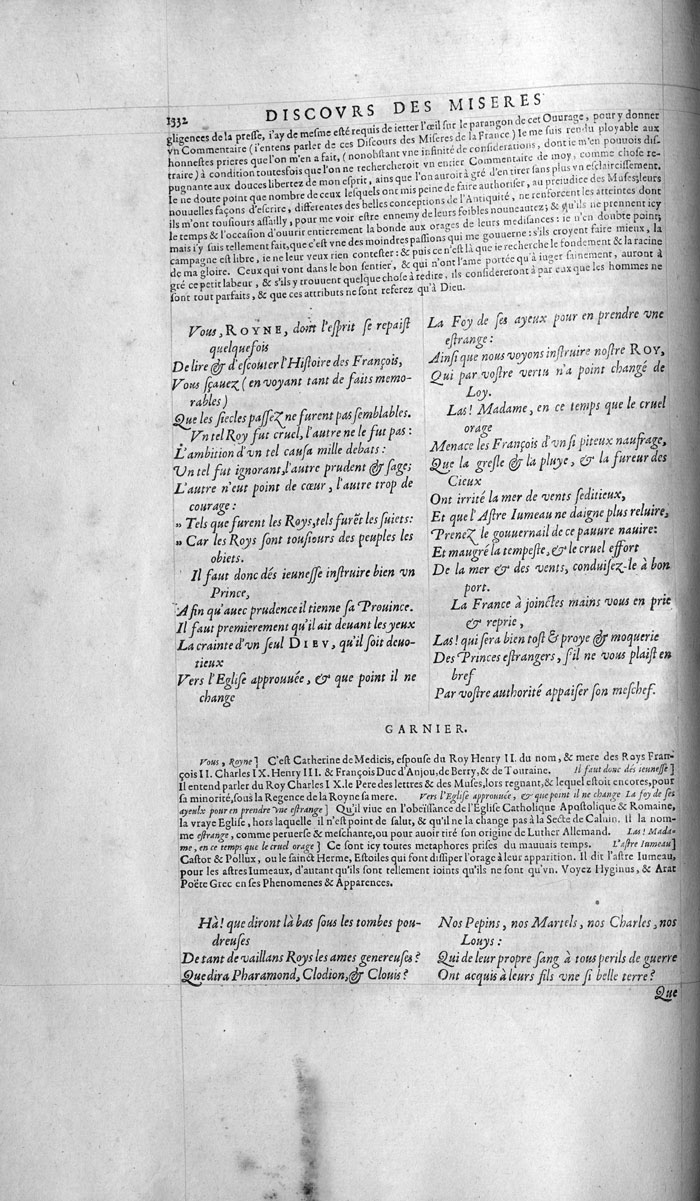 1332 DISCOVRS DES MISERES
gligences de la presse, i'ay de mesme esté requis de ietter l'œil sur le parangon de cet Ouurage, pour y donner
vn Commentaire (i'entens parler de ces Discours des Miseres de la France) Ie me suis rendu ployable aux
honnestes prieres que l'on m'en a fait, (nonobstant vne infinité de considerations, dont ie m'en pouuois dis-
traire) à condition toutesfois que l'on ne rechercheroit vn entier Commentaire de moy, comme chose re-
pugnante aux douces libertez de mon esprit, ains que l'on auroit à gré d'en tirer sans plus vn esclaircissement.
Ie ne doute point que nombre de ceux lesquels ont mis peine de faire authoriser, au preiudice des Muses, leurs
nouuelles façons d'escrire, differentes des belles conceptions de l'Antiquité, ne renforcent les atteintes dont
ils m'ont tousiours assailly, pour me voir estre ennemy de leurs foibles nouueautez; & qu'ils ne prennent icy
le temps & l'occasion d'ouurir entierement la bonde aux orages de leurs medisances: ie n'en doubte point;
mais i'y suis tellement fait, que c'est vne des moindres passions qui me gouuerne: s'ils croyent faire mieux, la
campagne est libre, ie ne leur veux rien contester: & puis ce n'est là que ie recherche le fondement & la racine
de ma gloire. Ceux qui vont dans le bon sentier, & qui n'ont l'ame portée qu'à iuger sainement, auront à
gré ce petit labeur, & s'ils y trouuent quelque chose à redire, ils considereront à par eux que les hommes ne
sont tout parfaits, & que ces attributs ne sont referez qu'à Dieu.
Vous, ROYNE, dont l'esprit se repaist
quelquefois
De lire & d'escouter l'Histoire des François,
Vous sçauez (en voyant tant de faits memo-
rables)
Que les siecles passez ne furent pas semblables.
Vn tel Roy fut cruel, l'autre ne le fut pas:
L'ambition d'vn tel causa mille debats:
Vn tel fut ignorant, l'autre prudent & sage;
L'autre n'eut point de cœur, l'autre trop de
courage:
» Tels que furent les Roys, tels furēt les suiets:
» Car les Roys sont tousiours des peuples les
obiets.
Il faut donc dés ieunesse instruire bien vn
Prince,
Afin qu'auec prudence il tienne sa Prouince.
Il faut premierement qu'il ait deuant les yeux
La crainte d'vn seul DIEV, qu'il soit deuo-
tieux
Vers l'Eglise approuuée, & que point il ne
change
La Foy de ses ayeux pour en prendre vne
estrange:
Ainsi que nous voyons instruire nostre ROY,
Qui par vostre vertu n'a point changé de
Loy.
Las! Madame, en ce temps que le cruel
orage
Menace les François d'vn si piteux naufrage,
Que la gresle & la pluye, & la fureur des
Cieux
Ont irrité la mer de vents seditieux,
Et que l'Astre Iumeau ne daigne plus reluire,
Prenez le gouuernail de ce pauure nauire:
Et maugré la tempeste, & le cruel effort
De la mer & des vents, conduisez-le à bon
port.
La France à joinctes mains vous en prie
& reprie,
Las! qui sera bien tost & proye & moquerie
Des Princes estrangers, s'il ne vous plaist en
bref
Par vostre authorité appaiser son meschef.
GARNIER.
Vous, Royne] C'est Catherine de Medicis, espouse du Roy Henry II. du nom, & mere des Roys Fran-
çois II. Charles IX. Henry III. & François Duc d'Anjou, de Berry, & de Touraine. Il faut donc dés ieunesse]
Il entend parler du Roy Charles IX. le Pere des lettres & des Muses, lors regnant, & lequel estoit encores, pour
sa minorité, sous la Regence de la Royne sa mere. Vers l'Eglise approuuée, & que point il ne change La foy de ses
ayeulx pour en prendre vne estrange] Qu'il viue en l'obeïssance de l'Eglise Catholique Apostolique & Romaine,
la vraye Eglise, hors laquelle il n'est point de salut, & qu'il ne la change pas à la Secte de Caluin. Il la nom-
me estrange, comme peruerse & meschante, ou pour auoir tiré son origine de Luther Allemand. Las! Mada-
me, en ce temps que le cruel orage] Ce sont icy toutes metaphores prises du mauuais temps. L'astre Iumeau]
Castor & Pollux, ou le sainct Herme, Estoiles qui font dissiper l'orage à leur apparition. Il dit l'astre Iumeau,
pour les astres Iumeaux, d'autant qu'ils sont tellement ioints qu'ils ne font qu'vn. Voyez Hyginus, & Arat
Poëte Grec en ses Phenomenes & Apparences.
Hà! que diront là bas sous les tombes pou-
dreuses
De tant de vaillans Roys les ames genereuses?
Que dira Pharamond, Clodion, & Clouis?
Nos Pepins, nos Martels, nos Charles, nos
Louys:
Qui de leur propre sang à tous perils de guerre
Ont acquis à leurs fils vne si belle terre?
Que